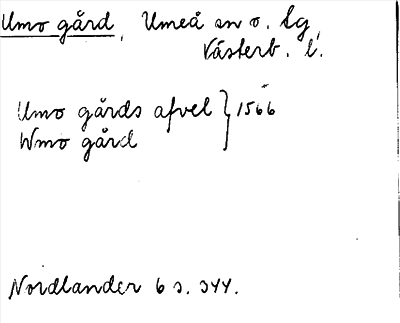 Umo gård, Umeå sn o. lg,
Västerb. l.
Umo gårds afvel } 1566
Wmo gård
Nordlander 6 s. 344.